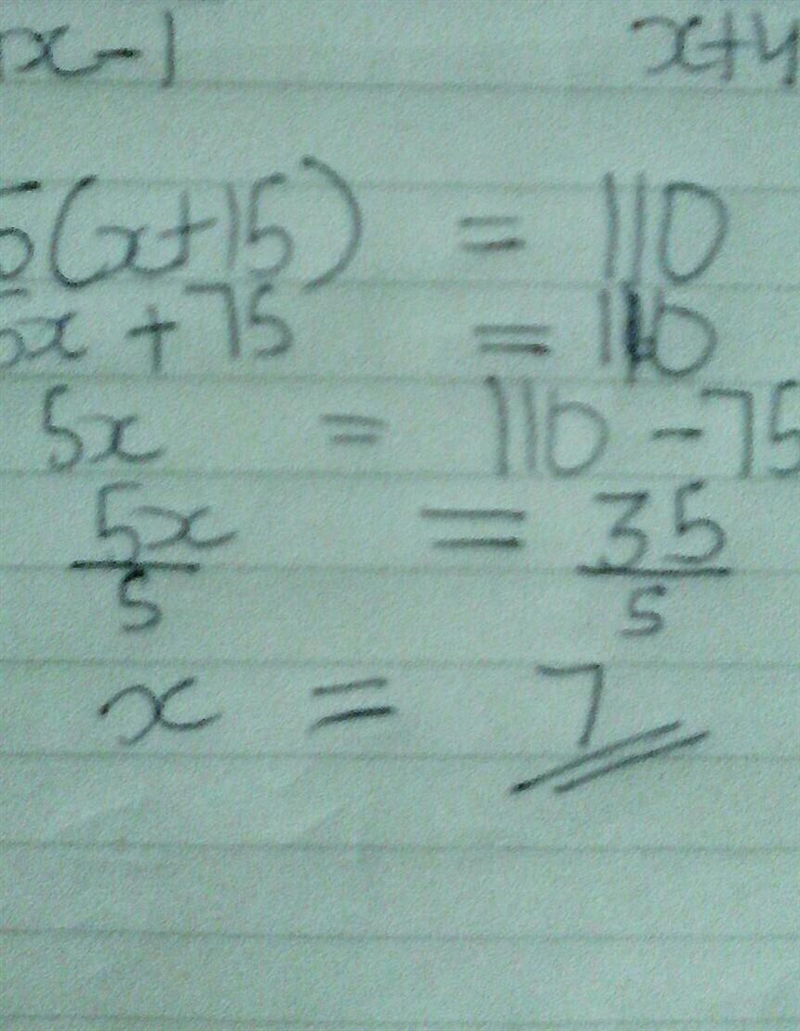 x-1 x+4
5(x+15) = 110
5x + 75 = 110
5x = 110 - 75
5x/5 = 35/5
x = 7